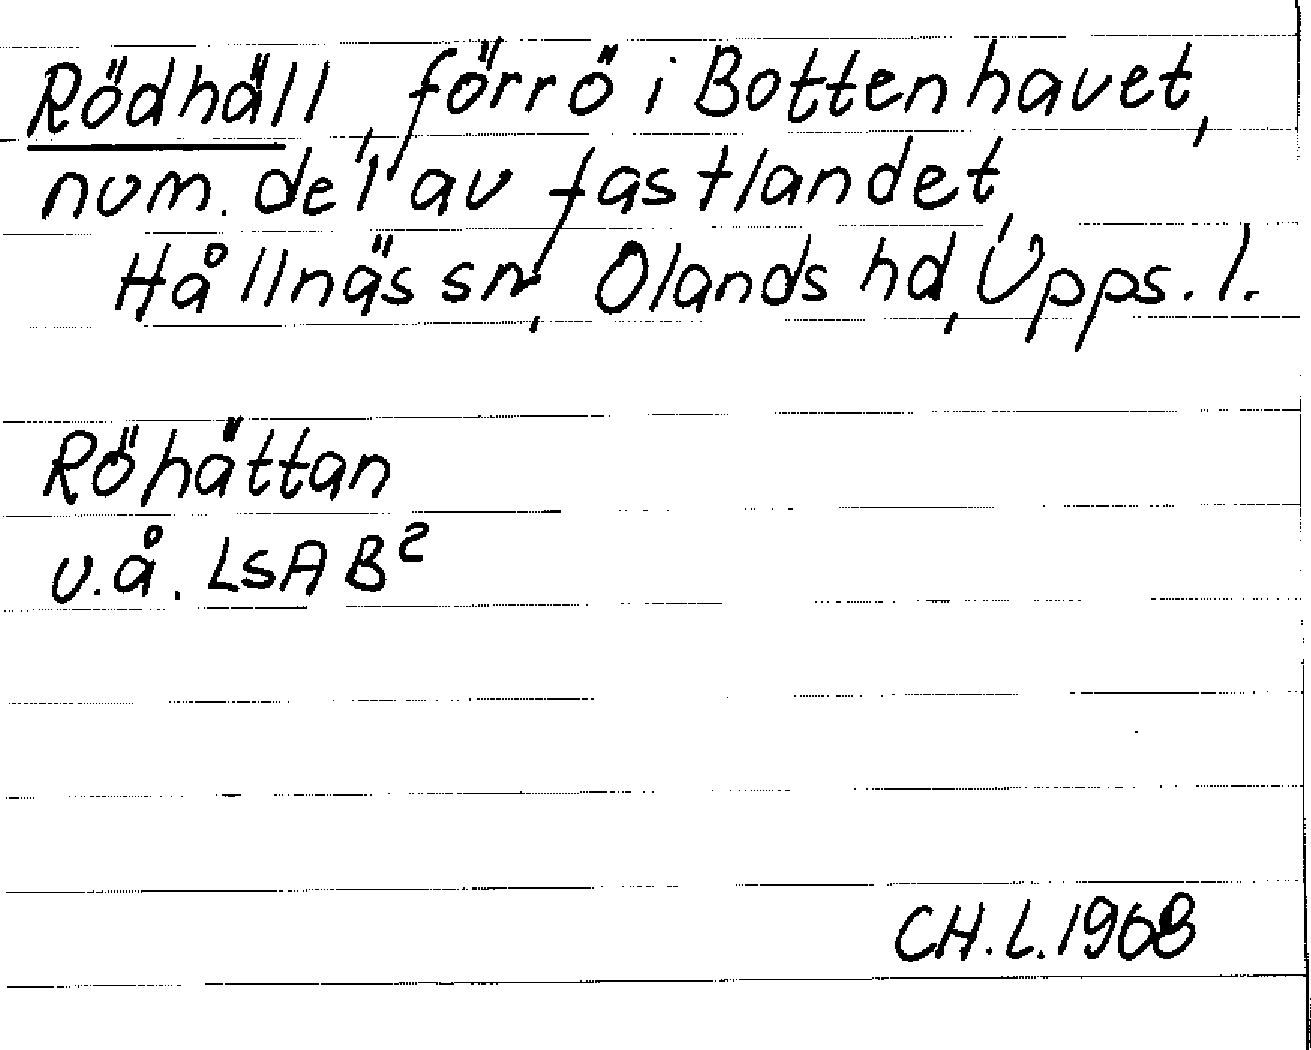 Rödhäll, förr ö i Bottenhavet,
num. del av fastlandet,
Hållnäs sn, Olands hd, Upps. l.
Röhättan
u.å. LSA B²
CH.L.1968